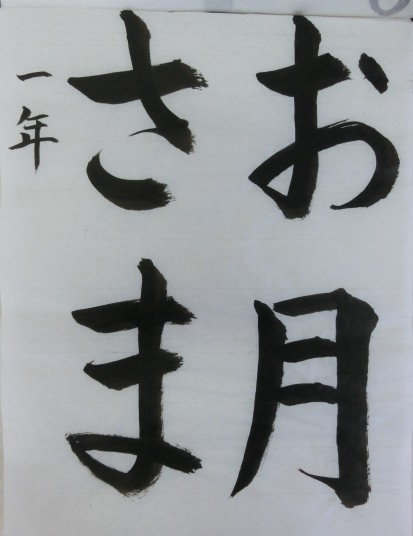 お月
さま
一年